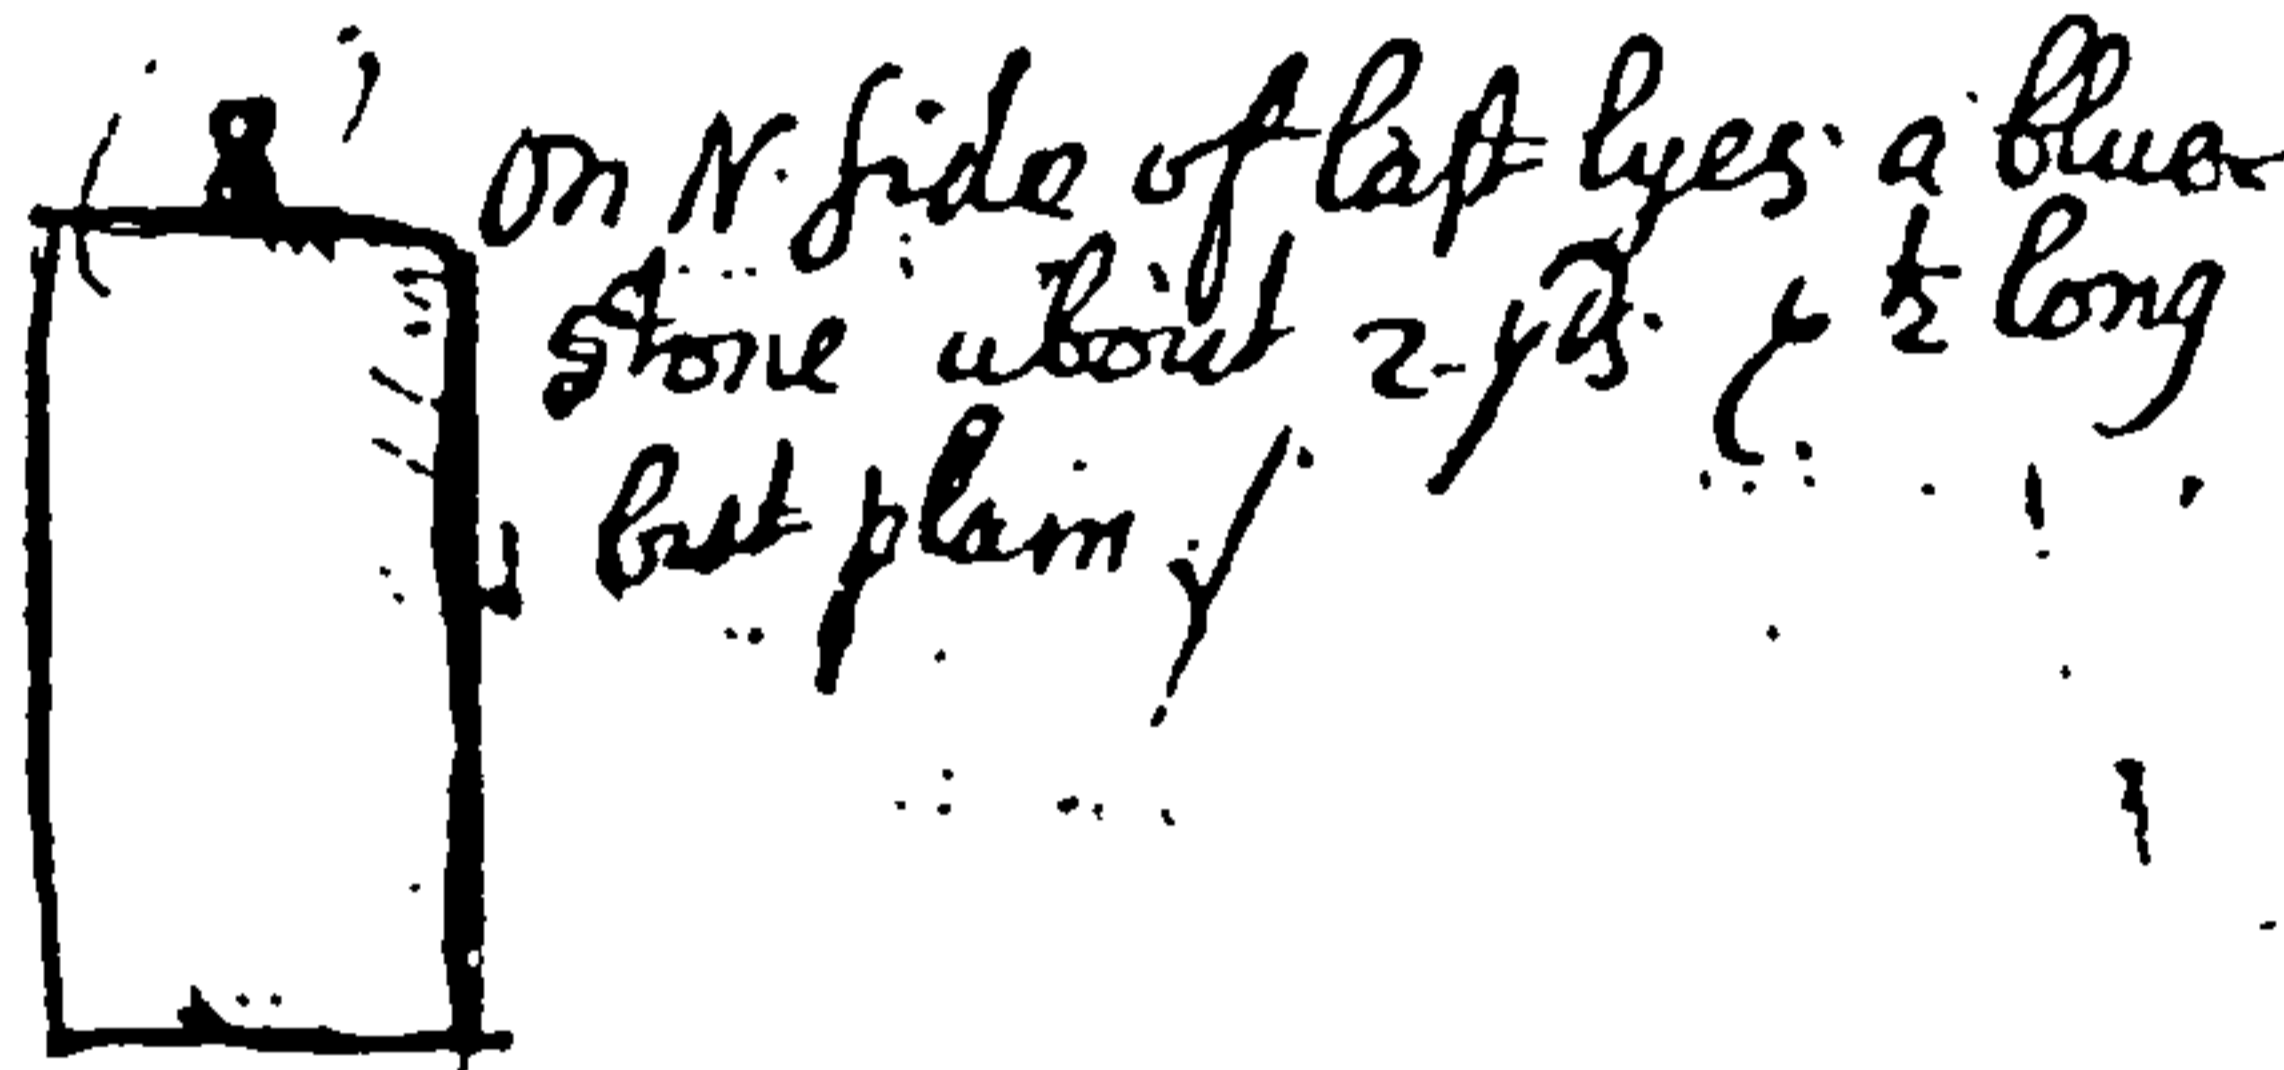 8
On N. side of last lyes a blue
stone about 2 yds. & ½ long
but plain